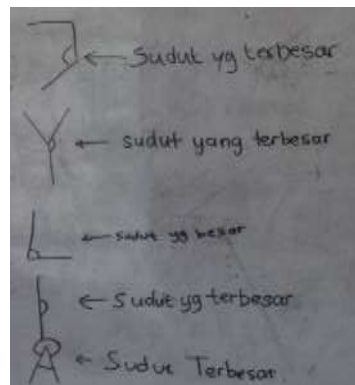 Sudut yg terbesar
sudut yang terbesar
sudut yg besar
Sudut yg terbesar
Sudut Terbesar